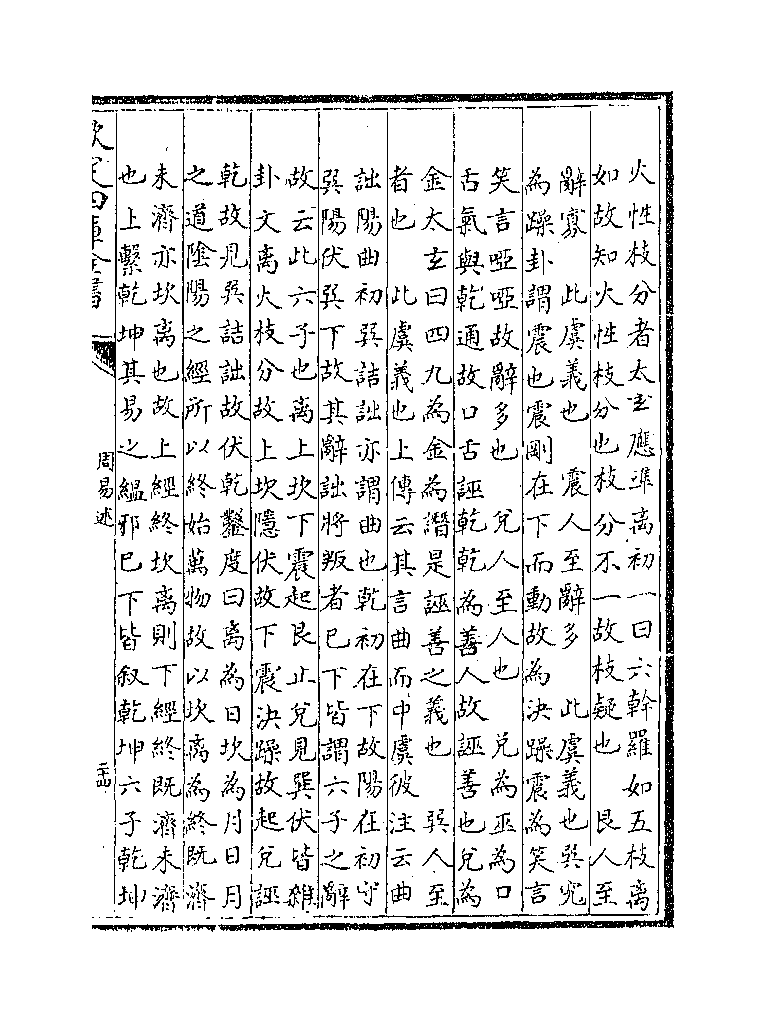 火性枝分者太𤣥應準离初一曰六幹羅如五枝离
如故知火性枝分也枝分不一故枝疑也　艮人至
辭寡　此虞義也　震人至辭多　此虞義也巽究
為躁卦謂震也震剛在下而動故為決躁震為笑言
笑言啞啞故辭多也　兌人至人也　兌為巫為口
舌氣與乾通故口舌誣乾乾為善人故誣善也兌為
金太𤣥曰四九為金為譖是誣善之義也　巽人至
者也　此虞義也上傳云其言曲而中虞彼注云曲
詘陽曲初巽詰詘亦謂曲也乾初在下故陽在初守
巽陽伏巽下故其辭詘將叛者已下皆謂六子之辭
故云此六子也离上坎下震起艮止兌見巽伏皆雜
卦文离火枝分故上坎隱伏故下震決躁故起兌誣
乾故見巽詰詘故伏乾鑿度曰离為日坎為月日月
之道陰陽之經所以終始萬物故以坎离為終既濟
未濟亦坎离也故上經終坎离則下經終既濟未濟
也上繫乾坤其易之緼邪已下皆叙乾坤六子乾坤
欽定四庫全書
周易述